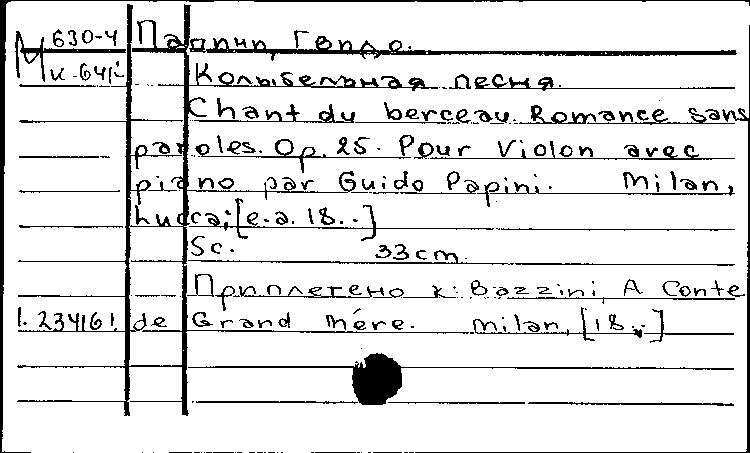 М 630-4 Папини, Гвидо.
к-641/2 Колыбельная песня.
Chant du berceau. Romance sans
paroles. Op. 25. Pour Violon avec
piano par Guido Papini. Milan,
Lucca; [e.a. 18..]
Sc. 33cm.
Приплетено к: Bazzini, A Conte
1. 234161. de Grand Mére. Milan, [18..]